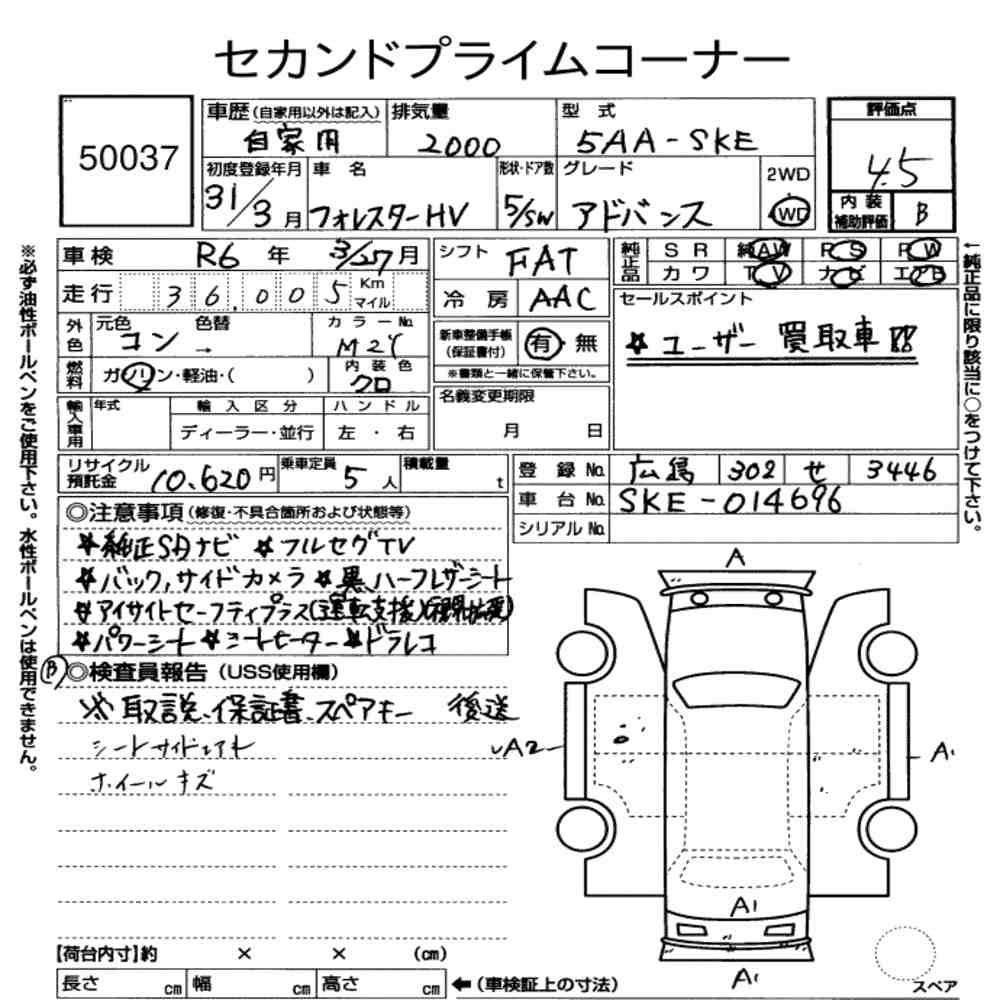 セカンドプライムコーナー
50037
車歴(自家用以外は記入) 自家用
排気量 2000
型式 5AA-SKE
評価点 4.5
初度登録年月 31/3月
車名 フォレスターHV
形状・ドア数 5/SW
グレード アドバンス
2WD
4WD
内装補助評価 B
車検 R6年 3/ 月
走行 36,005 Km マイル
シフト FAT
冷房 AAC
純正品 SR 純AW PS PW
カワ TV ナビ エアB
外色 元色 コン 色替 →
カラーNo. M2Y
燃料 ガソリン・軽油・( )
内装色 クロ
新車整備手帳(保証書付) 有・無
※書類と一緒に保管下さい。
セールスポイント
☆ユーザー買取車!!
輸入車用 年式 輸入区分 ハンドル
ディーラー・並行 左・右
名義変更期限
月 日
リサイクル預託金 10.620円
乗車定員 5人
積載量 t
登録No. 広島 302 せ 3446
車台No. SKE-014696
シリアルNo.
◎注意事項(修復・不具合箇所および状態等)
☆純正SDナビ ☆フルセグTV
☆バック,サイドカメラ ☆黒ハーフレザーシート
☆アイサイトセーフティプラス(運転支援)
☆パワーシート ☆シートヒーター ☆ドラレコ
B ◎検査員報告(USS使用欄)
※取説、保証書、スペアキー 後送
ホイールキズ
A
A2
A1
A1
A1
【荷台内寸】約 × × (cm)
長さ cm 幅 cm 高さ cm
←(車検証上の寸法)
スペア
※必ず油性ボールペンをご使用下さい。水性ボールペンは使用できません。
↑純正品に限り該当に○をつけて下さい。